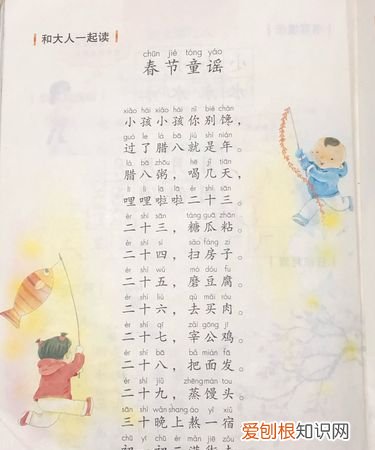 和大人一起读
chūn jié tóng yáo
春节童谣
xiǎo hái xiǎo hái nǐ bié chán
小孩小孩你别馋，
guò le là bā jiù shì nián
过了腊八就是年。
là bā zhōu hē jǐ tiān
腊八粥，喝几天，
lī lī lā lā èr shí sān
哩哩啦啦二十三。
èr shí sān táng guā zhān
二十三，糖瓜粘。
èr shí sì sǎo fáng zi
二十四，扫房子。
èr shí wǔ mó dòu fu
二十五，磨豆腐。
èr shí liù qù mǎi ròu
二十六，去买肉。
èr shí qī zǎi gōng jī
二十七，宰公鸡。
èr shí bā bǎ miàn fā
二十八，把面发。
èr shí jiǔ zhēng mán tou
二十九，蒸馒头。
sān shí wǎn shang áo yì xiǔ
三十晚上熬一宿
chū yī chū èr mǎn jiē zǒu
爱刨根知识网
www.baogenzhishi.com